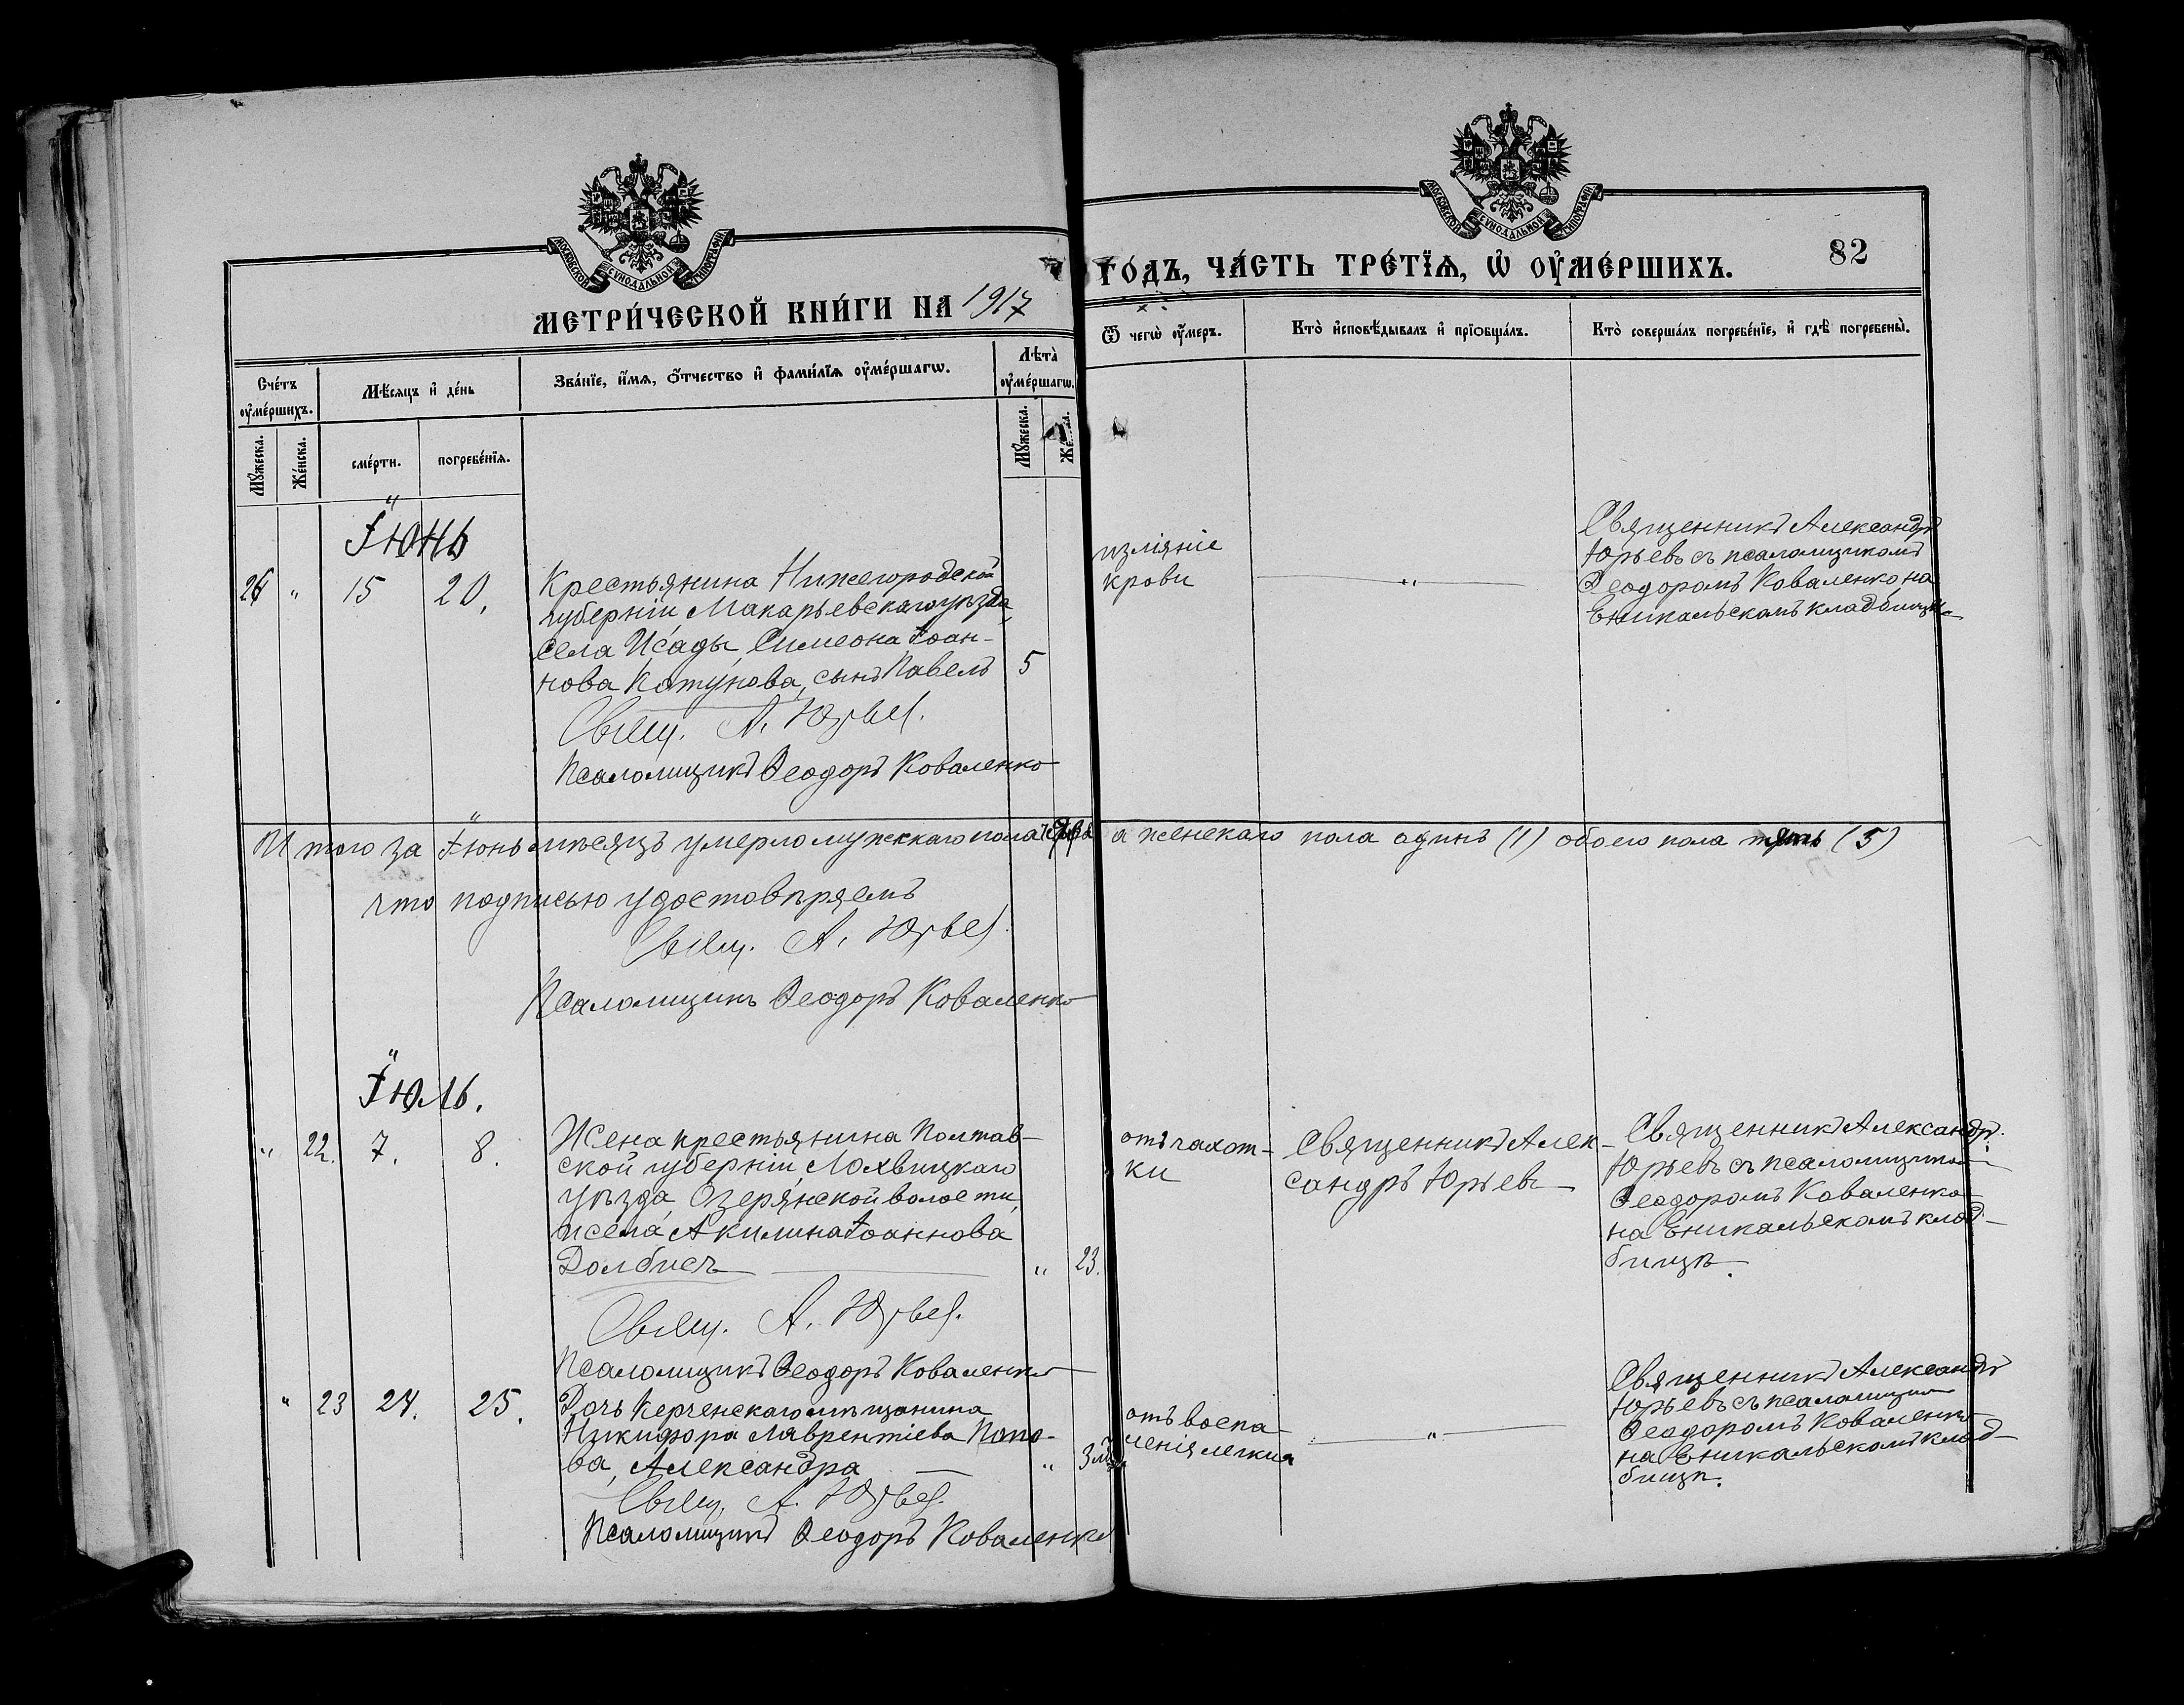 МОСКОВСКОЙ СѴНОДАЛЬНОЙ ТИПОГРАФІИ
МОСКОВСКОЙ СѴНОДАЛЬНОЙ ТИПОГРАФІИ
МЕТРИ́ЧЕСКОЙ КНИ́ГИ НА 1917
ГО́ДЪ, ЧА́СТЬ ТРЕ́ТЇѦ, Ѡ҆ ОУ҆МЕ́РШИХЪ.
82
Сче́тъ оу҆ме́ршихъ.
Мѣ́сяцъ и҆ де́нь
Зва́нїе, и҆́мѧ, ѻ҆́тчество и҆ фами́лїѧ оу҆ме́ршагѡ.
Лѣ́та оу҆ме́ршагѡ.
Ѿ чегѡ̀ оу҆́меръ.
Кто̀ и҆сповѣ́дывалъ и҆ прїѡбща́лъ.
Кто̀ соверша́лъ погребе́нїе, и҆ гдѣ̀ погребены̀.
Мꙋ́жеска.
Же́нска.
сме́рти.
погребе́нїѧ.
Мꙋ́жеска.
Іюнь
26 " 15 20.
Крестьянина Нижегородской
губерніи, Макарьевскаго уѣзда,
села Исады, Симеона Іоан-
нова Котунова, сынъ Павелъ 5
Свящ. А. Юрьев.
Псаломщикъ Ѳеодоръ Коваленко
изліяніе
крови
"
Священникъ Александръ
Юрьевъ съ псаломщикомъ
Ѳеодоромъ Коваленко, на
Еникальскомъ кладбищѣ
И того за Іюнь мѣсяцъ умерло мужскаго пола а женскаго пола одинъ (1) обоего пола пять (5)
что подписью удостовѣряемъ
Свящ. А. Юрьев
Псаломщикъ Ѳеодоръ Коваленко
Іюль.
" 22. 7. 8.
Жена крестьянина Полтав-
ской губерніи, Лохвицкаго
уѣзда, Озерянской волости,
и села Акилина Іоаннова
Долбиех " 23.
Свящ. А. Юрьев.
Псаломщикъ Ѳеодоръ Коваленко
отъ чахот-
ки
Священникъ Алек-
сандръ Юрьевъ
Священникъ Александръ
Юрьевъ съ псаломщикомъ
Ѳеодоромъ Коваленко
на Еникальскомъ клад-
бищѣ.
" 23 24. 25.
Дочь Керченскаго мѣщанина
Никифора Лаврентіева Попо-
ва, Александра " 3 м.
Свящ. А. Юрьев.
Псаломщикъ Ѳеодоръ Коваленко
отъ воспа-
ленія легких
"
Священникъ Александръ
Юрьевъ съ псаломщикомъ
Ѳеодоромъ Коваленко
на Еникальскомъ клад-
бищѣ.